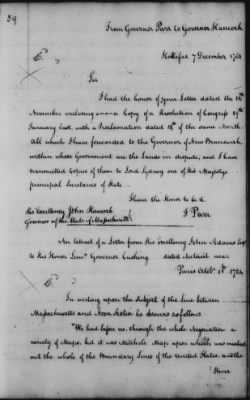 39
From Governor Parr to Governor Hancock
Hallifax 7 December 1784
Sir
I had the honor of your Letter dated the 12th
November enclosing a Copy of a Resolution of Congress 29th
January last, with a Proclamation dated 18th of the same Month
All which I have forwarded to the Governor of New Brunswick
within whose Government are the Lands in dispute; and I have
transmitted Copies of them to Lord Sydney one of his Majestys
principal Secretaries of State
I have the Honor to be &c
His Excellency John Hancock
J Parr
Governor of the State of Massachusetts
An Extract of a Letter from His Excellency John Adams Esqr
to His Honor Lieut Governor Cushing dated Auteuil near
Paris October 25th 1784
In writing upon the subject of the Line between
Massachusetts and Nova Scotia he answers as follows
"We had before us, through the whole Negociation a
variety of Maps, but it was Mitchels Map upon which was marked
out the whole of the Boundary Lines of the United States, and the
River